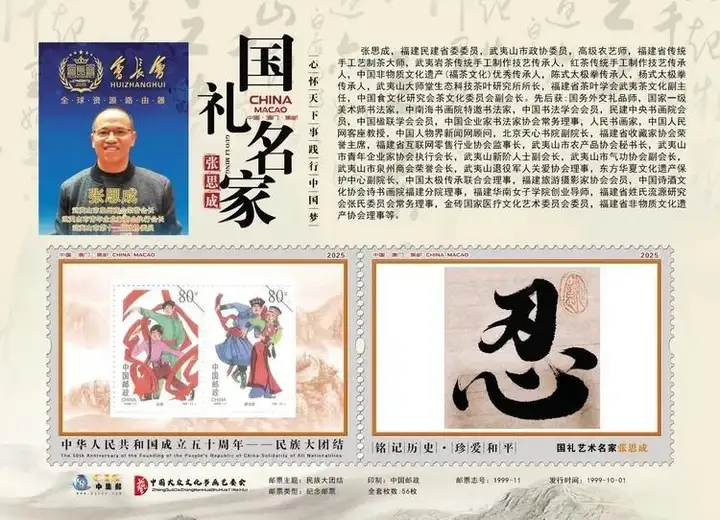 會長會
HUIZHANGHUI
全球资源路由器
张思成
国礼名家
CHINA
MACAO
中国·澳门·集邮
GUO LI MING JIA
张思成
心怀天下事 践行中国梦
张思成，福建民建省委委员，武夷山市政协委员，高级农艺师，福建省传统
手工艺制茶大师，武夷岩茶传统手工制作技艺传承人，红茶传统手工制作技艺传承
人，中国非物质文化遗产(福茶文化)优秀传承人，陈式太极拳传承人，杨式太极拳
传承人，武夷山大师堂生态科技茶叶研究所所长，福建省茶叶学会武夷茶文化副主
任，中国食文化研究会茶文化委员会副会长。先后获:国务外交礼品师，国家一级
美术师书法家，中南海书画院特邀书法家，中国书法学会会员，民建中央书画会会
员，中国楹联学会会员，中国企业家书法家协会常务理事，人民书画家，中国人民
网客座教授，中国人物界新闻网顾问，北京天心书院副院长，福建省收藏家协会荣
誉主席，福建省互联网零售行业协会监事长，武夷山市农产品协会秘书长，武夷山
市青年企业家协会执行会长，武夷山新阶人士副会长，武夷山市气功协会副会长，
武夷山市泉州商会荣誉会长，武夷山退役军人关爱协会理事，东方华夏文化遗产保
护中心副院长，中国太极传承联合会理事，福建旅游摄影家协会会员，中国诗酒文
化协会诗书画院福建分院理事，福建华南女子学院创业导师，福建省姓氏源流研究
会张氏委员会常务理事，金砖国家医疗文化艺术委员会委员，福建省非物质文化遗
产协会理事等。
中国·澳门·集邮 CHINA MACAO
2025
80分
中国邮政
CHINA
80分
中国邮政
CHINA
中华人民共和国成立五十周年——民族大团结
The 50th Anniversary of the Founding of the People's Republic of China:Solidarity of All Nationalities
中国·澳门·集邮 CHINA MACAO
2025
忍
铭记历史·珍爱和平
国礼艺术名家张思成
中集邮
中国大众文化书画艺委会
邮票主题：民族大团结
邮票类型：纪念邮票
印制：中国邮政
全套枚数：56枚
邮票志号：1999-11
发行时间：1999-10-01